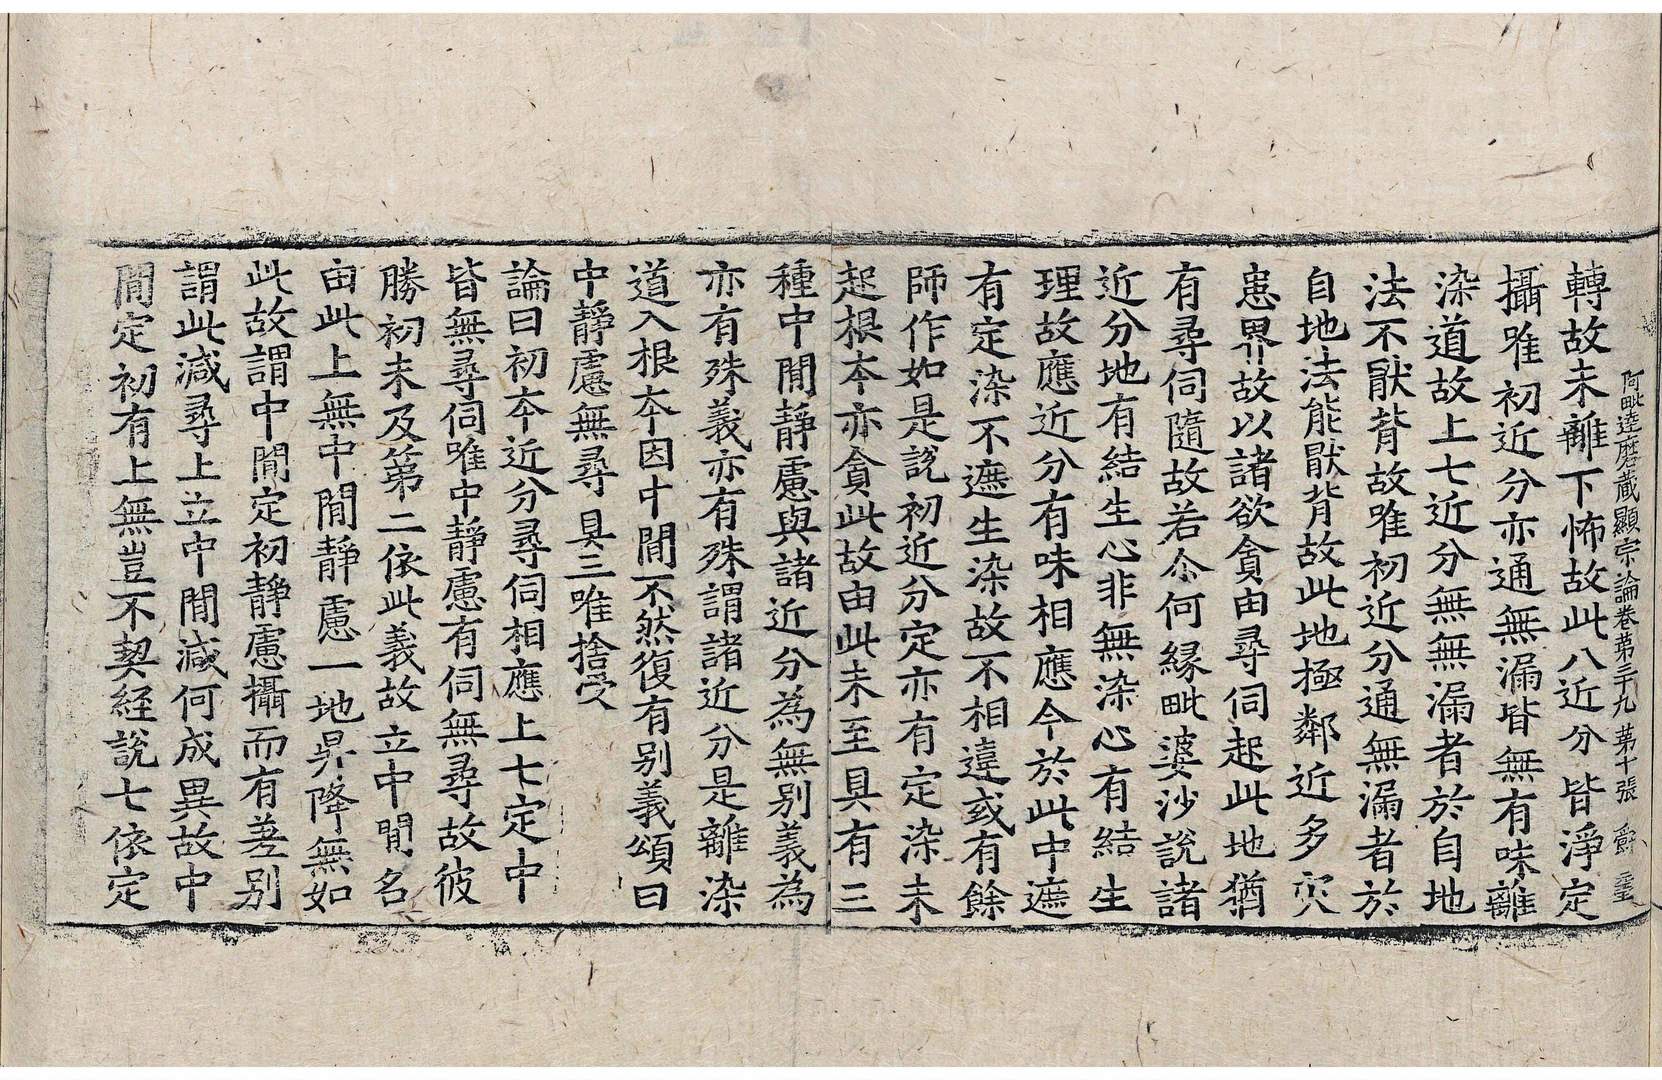 阿毗達磨藏顯宗論卷第三十九 第十張
轉故未離下怖故此八近分皆淨定
攝唯初近分亦通無漏皆無有味離
染道故上七近分無無漏者於自地
法不猒背故唯初近分通無漏者於
自地法能猒背故此地極鄰近多灾
患界故以諸欲貪由尋伺起此地猶
有尋伺隨故若尒何緣毗婆沙說諸
近分地有結生心非無染心有結生
理故應近分有味相應今於此中遮
有定染不遮生染故不相違或有餘
師作如是說初近分定亦有定染未
起根本亦貪此故由此未至具有三
種中閒靜慮與諸近分為無別義為
亦有殊義亦有殊謂諸近分是離染
道入根本因中閒不然復有別義頌曰
中靜慮無尋 具三唯捨受
論曰初本近分尋伺相應上七定中
皆無尋伺唯中靜慮有伺無尋故彼
勝初未及第二依此義故立中閒名
由此上無中閒靜慮一地昇降無如
此故謂中閒定初靜慮攝而有差別
謂此減尋上立中閒減何成異故中
閒定初有上無豈不契經說七依定